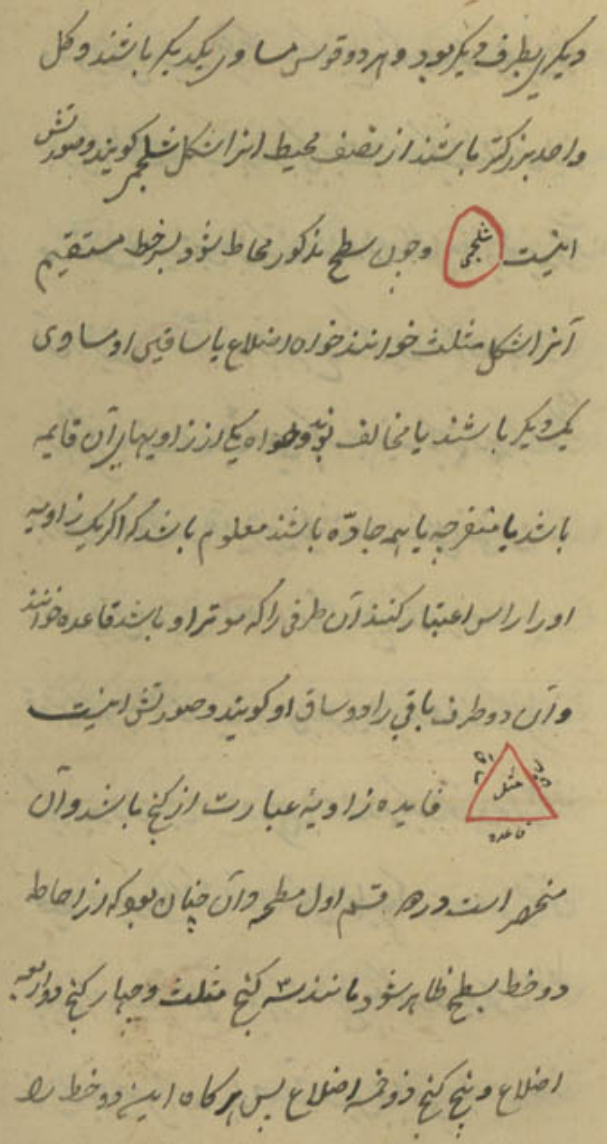 دیکری بطرف دیکر بود و هر دو قوس مساوی یکدیکر باشند و کل
واحد بزرکتر باشند از نصف محیط انرا شکل شلجمی کویند و صورتش
اینست شلجمی و چون سطح مذکور محاط شود بسه خط مستقیم
آنرا شکل مثلث خوانند خواه اضلاع یا ساقین او مساوی
یک دیکر باشند یا مخالف بوند و خواه یکی از زاویهای آن قایمه
باشد یا منفرجه یا همه حادّه باشند معلوم باشد که اکر یک زاویه
او را راس اعتبار کنند آن طرفی را که موتر او باشد قاعده خوانند
و آن دو طرف باقی را دو ساق او کویند و صورتش اینست
ساق مثلث ساق قاعده فایده زاویهٔ عبارت از کنج باشد و آن
منحصر است در قسم اول مسطحه و آن چنان بود که از احاطه
دو خط بسطح ظاهر شود مانند سه کنج مثلث و چهار کنج ذو اربعه
اضلاع و پنج کنج ذو خمسه اضلاع پس هرکاه این دو خط را